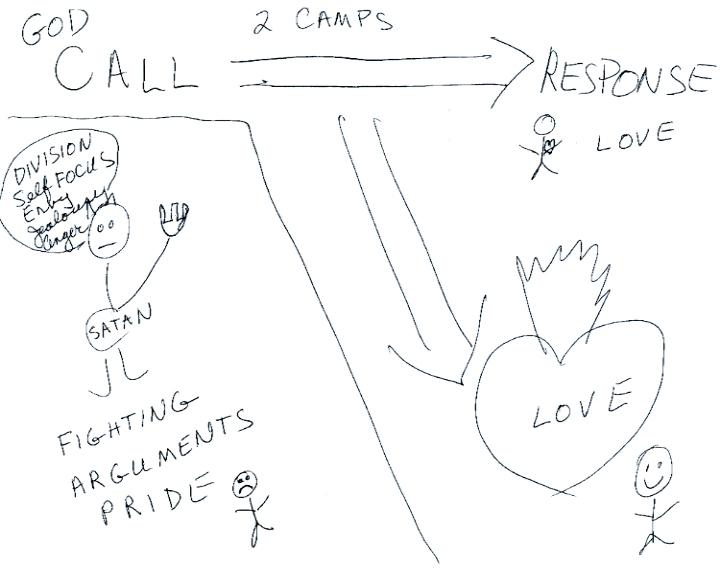 GOD
2 CAMPS
CALL
RESPONSE
LOVE
DIVISION
Self FOCUS
Envy
Jealousy
Anger
SATAN
FIGHTING
ARGUMENTS
PRIDE
LOVE